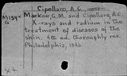 Cipollaro, A.C.
MacKee, G.M. and Cipollaro, A.C.
X-rays and radium in the
treatment of diseases of the
skin. 4th ed. thoroughly rev.
Philadelphia, 1946